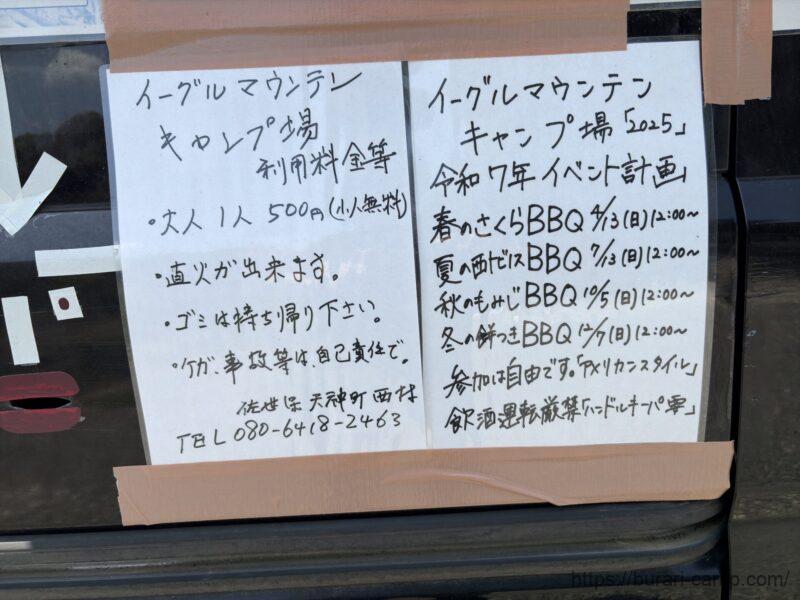 イーグルマウンテン
キャンプ場
利用料金等
・大人1人 500円(小人無料)
・直火が出来ます。
・ゴミは持ち帰り下さい。
・ケガ、事故等は、自己責任で。
佐世保 天神町 西村
TEL 080-6418-2463
イーグルマウンテン
キャンプ場「2025」
令和7年 イベント計画」
春のさくらBBQ 4/13(日)12:00~
夏の西トビスBBQ 7/13(日)12:00~
秋のもみじBBQ 10/5(日)12:00~
冬の餅つきBBQ 12/7(日)12:00~
参加は自由です。「アメリカンスタイル」
飲酒運転厳禁「ハンドルキーパ
https://burari-camp.com/